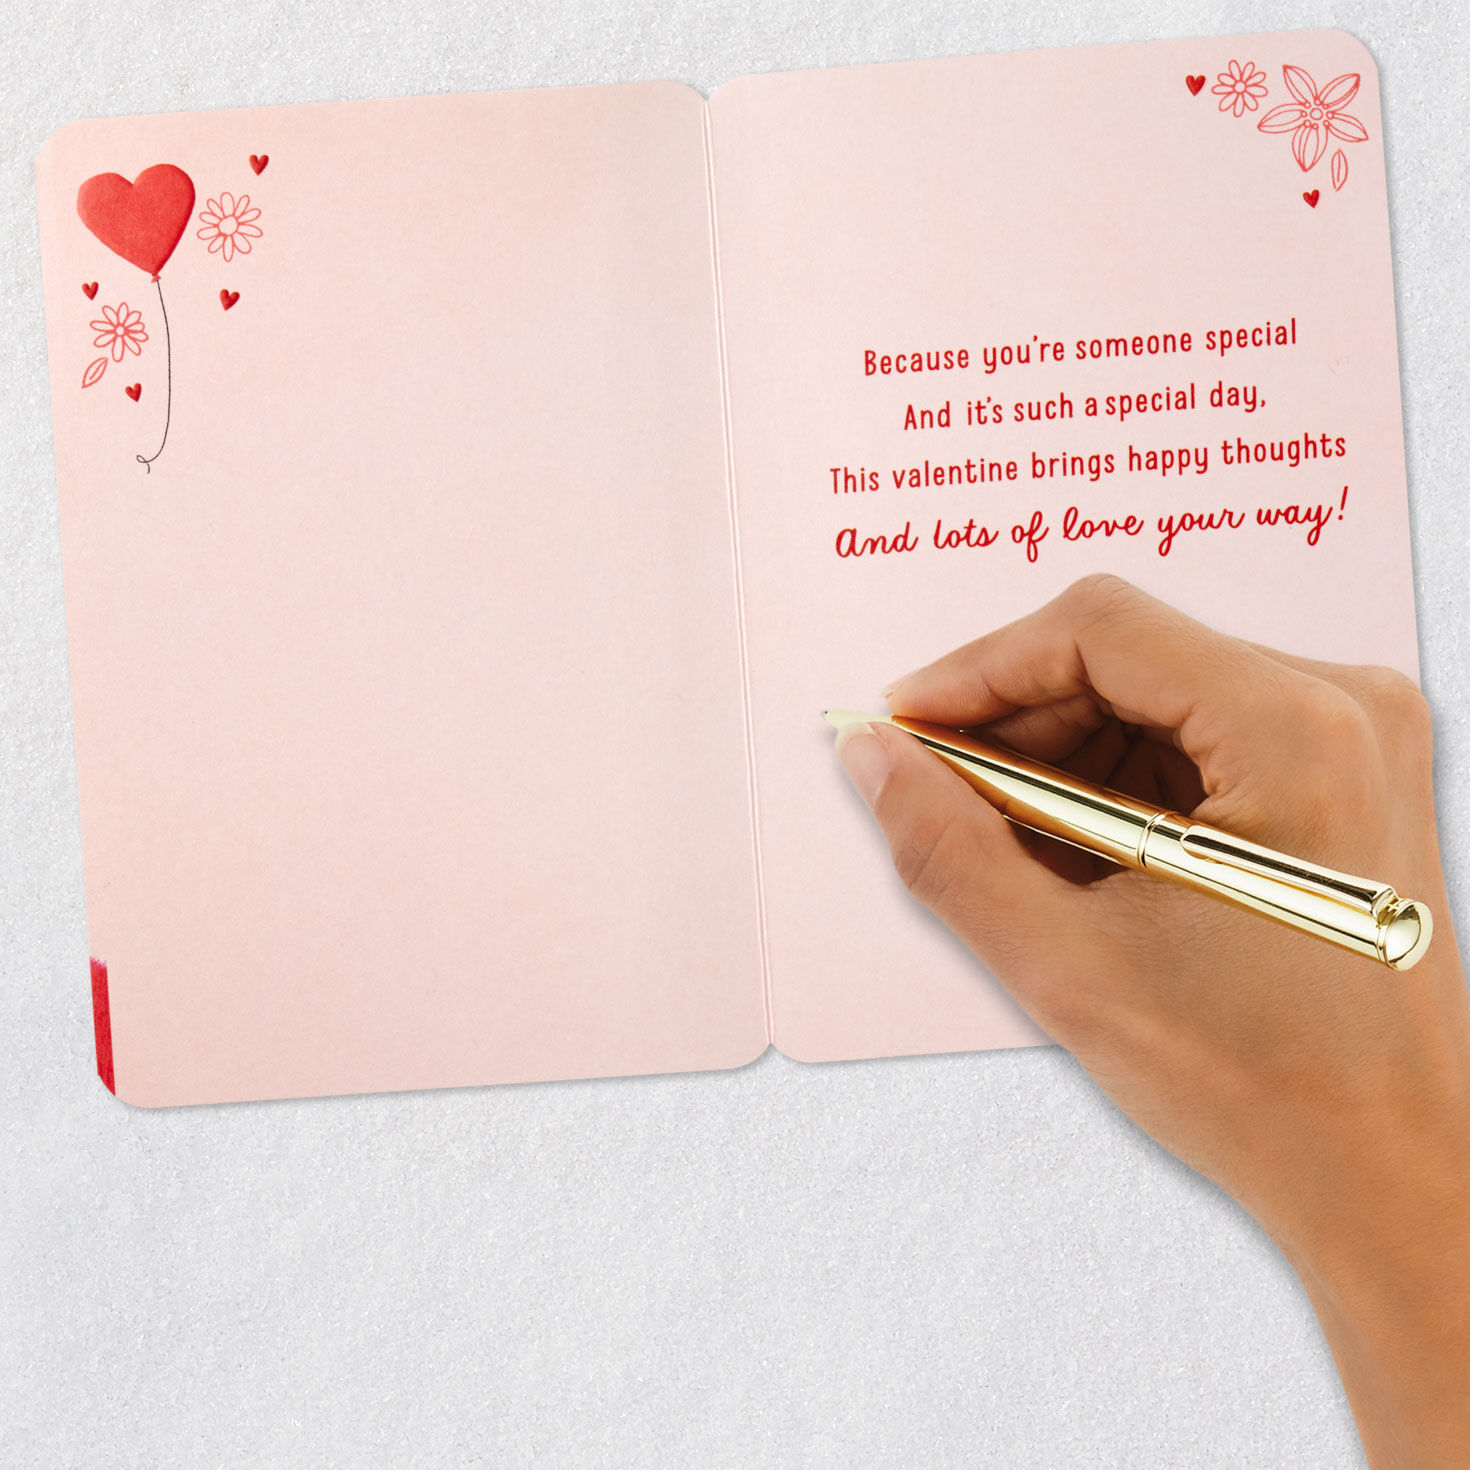 Because you're someone special
And it's such a special day,
This valentine brings happy thoughts
And lots of love your way!